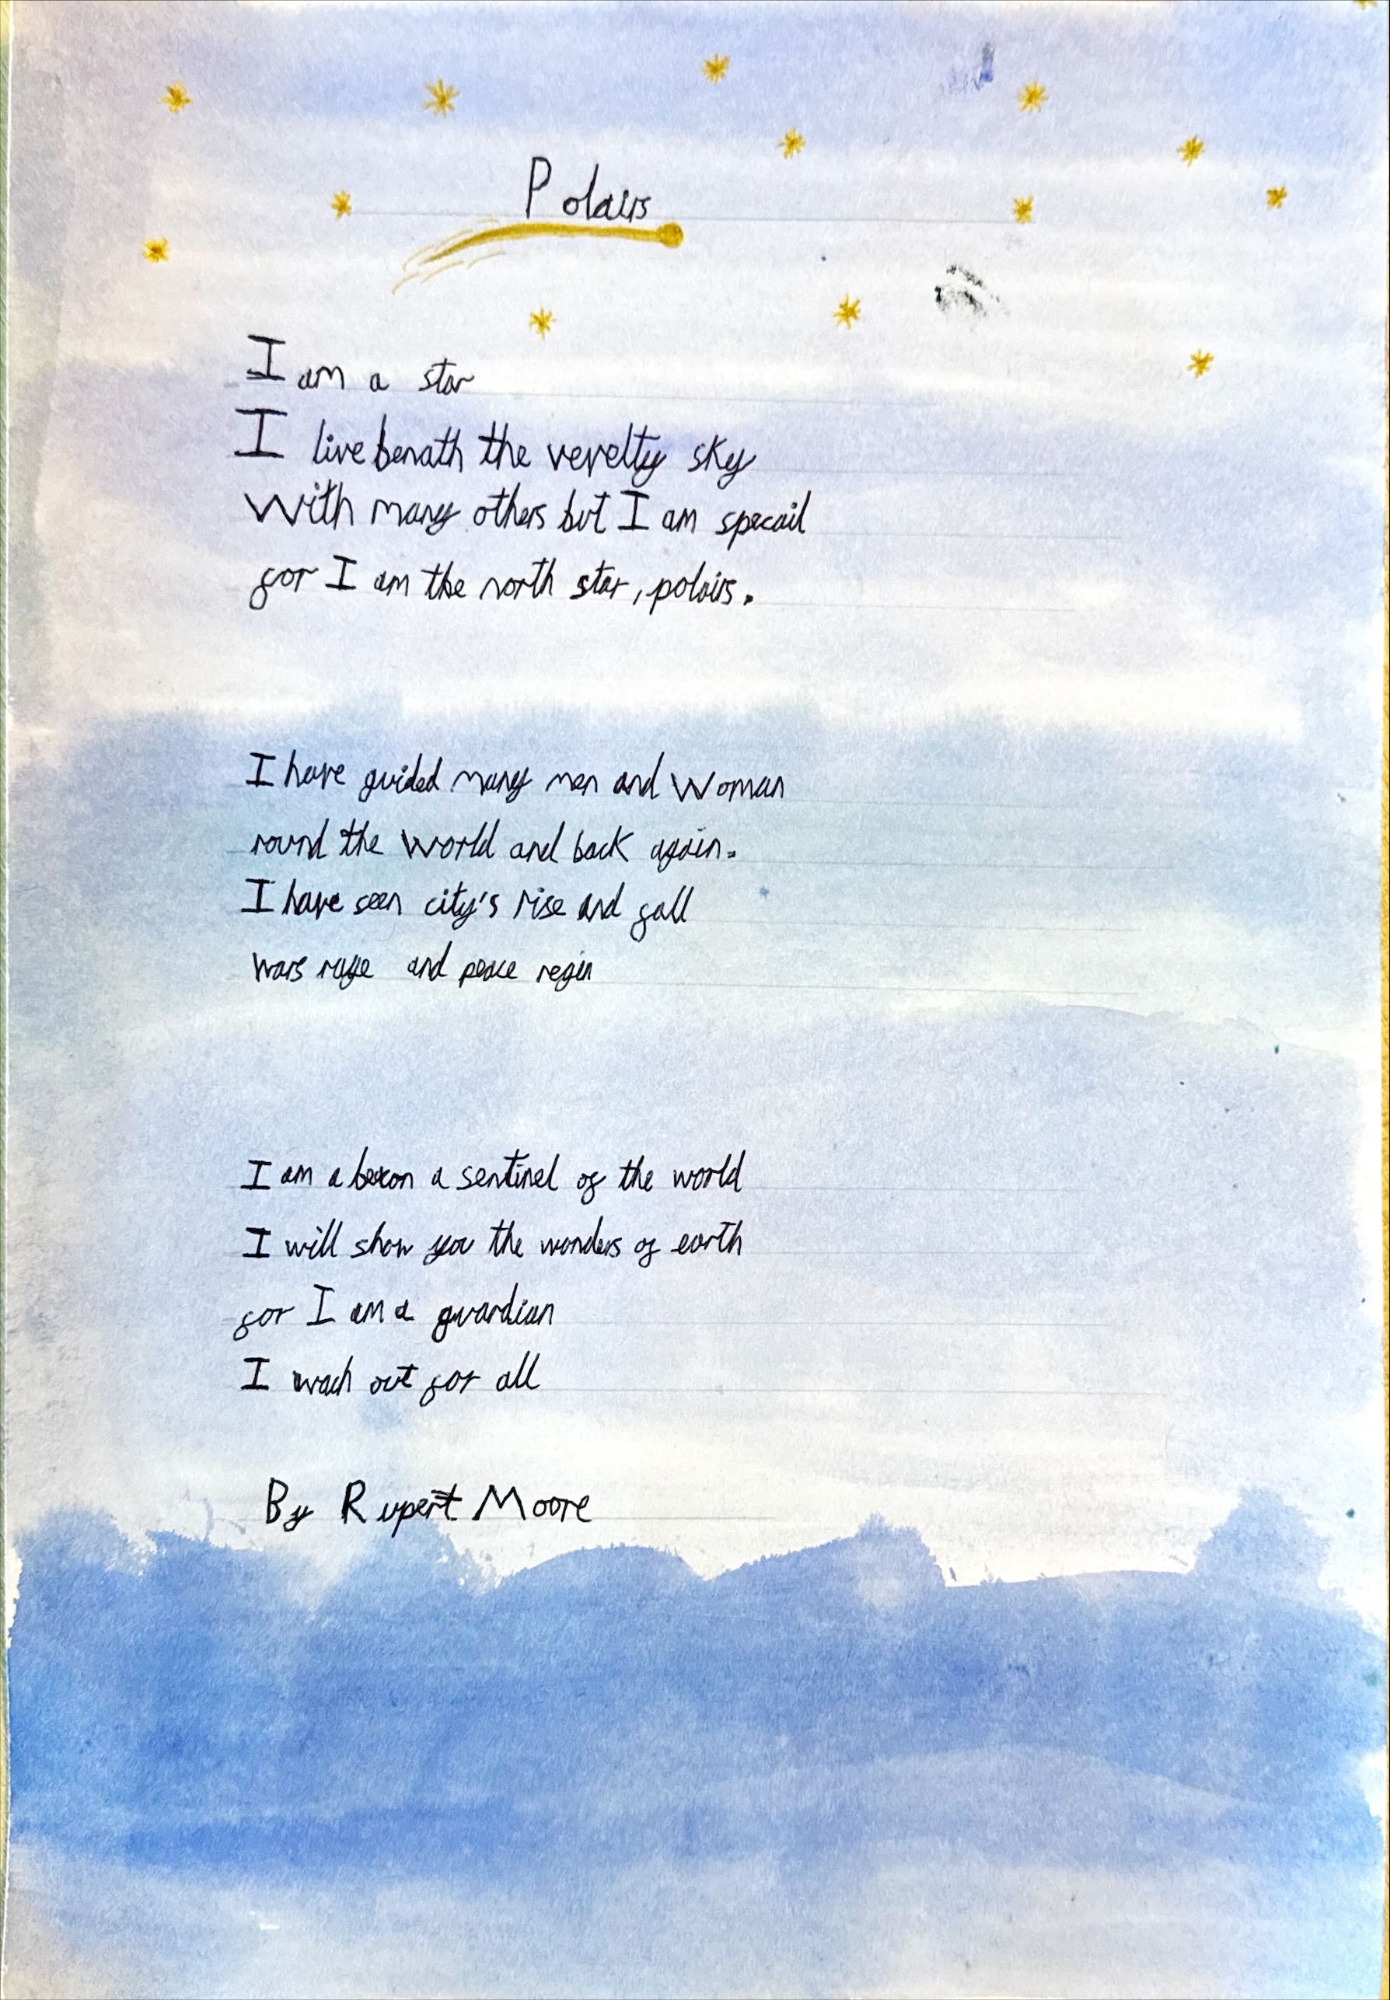 Polairs
I am a star
I live benath the verelty sky
With many others but I am specail
for I am the north star, polairs.
I have guided many men and Woman
round the World and back again.
I have seen city's rise and fall
Wars rage and peace regin
I am a beacon a sentinel of the world
I will show you the wonders of earth
for I am a guardian
I wach out for all
By Rupert Moore